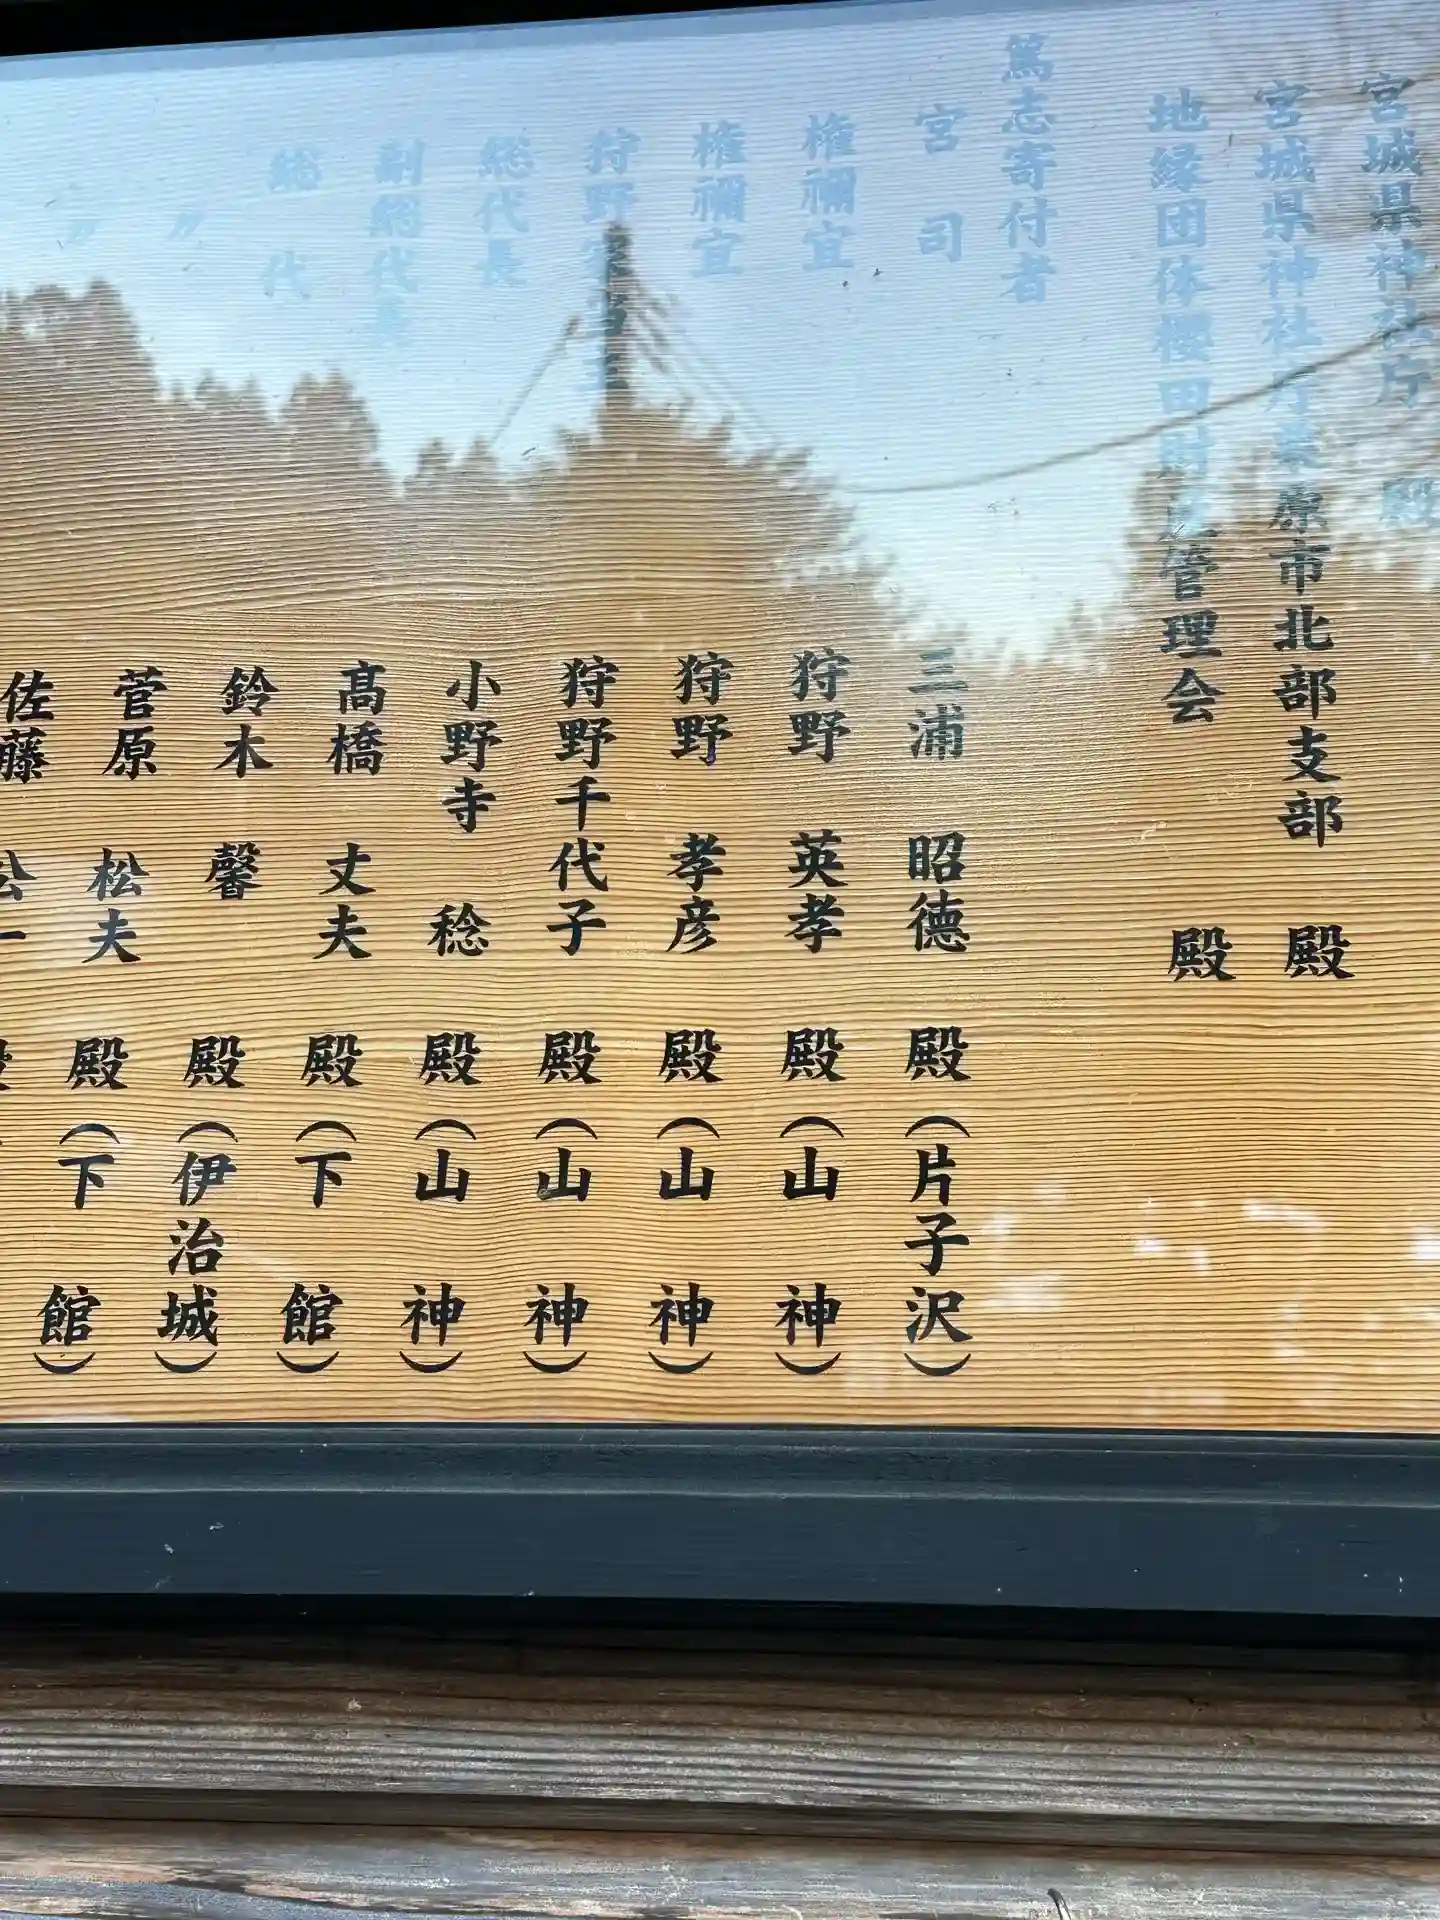 宮城県神社庁 殿
宮城県神社庁栗原市北部支部 殿
地縁団体櫻田財産管理会 殿
篤志寄付者
宮司 三浦 昭德 殿 (片子沢)
権禰宜 狩野 英孝 殿 (山神)
権禰宜 狩野 孝彦 殿 (山神)
狩野 狩野千代子 殿 (山神)
総代長 小野寺 稔 殿 (山神)
副総代長 髙橋 丈夫 殿 (下館)
総代 鈴木 馨 殿 (伊治城)
〃 菅原 松夫 殿 (下館)
〃 佐藤 公一 殿